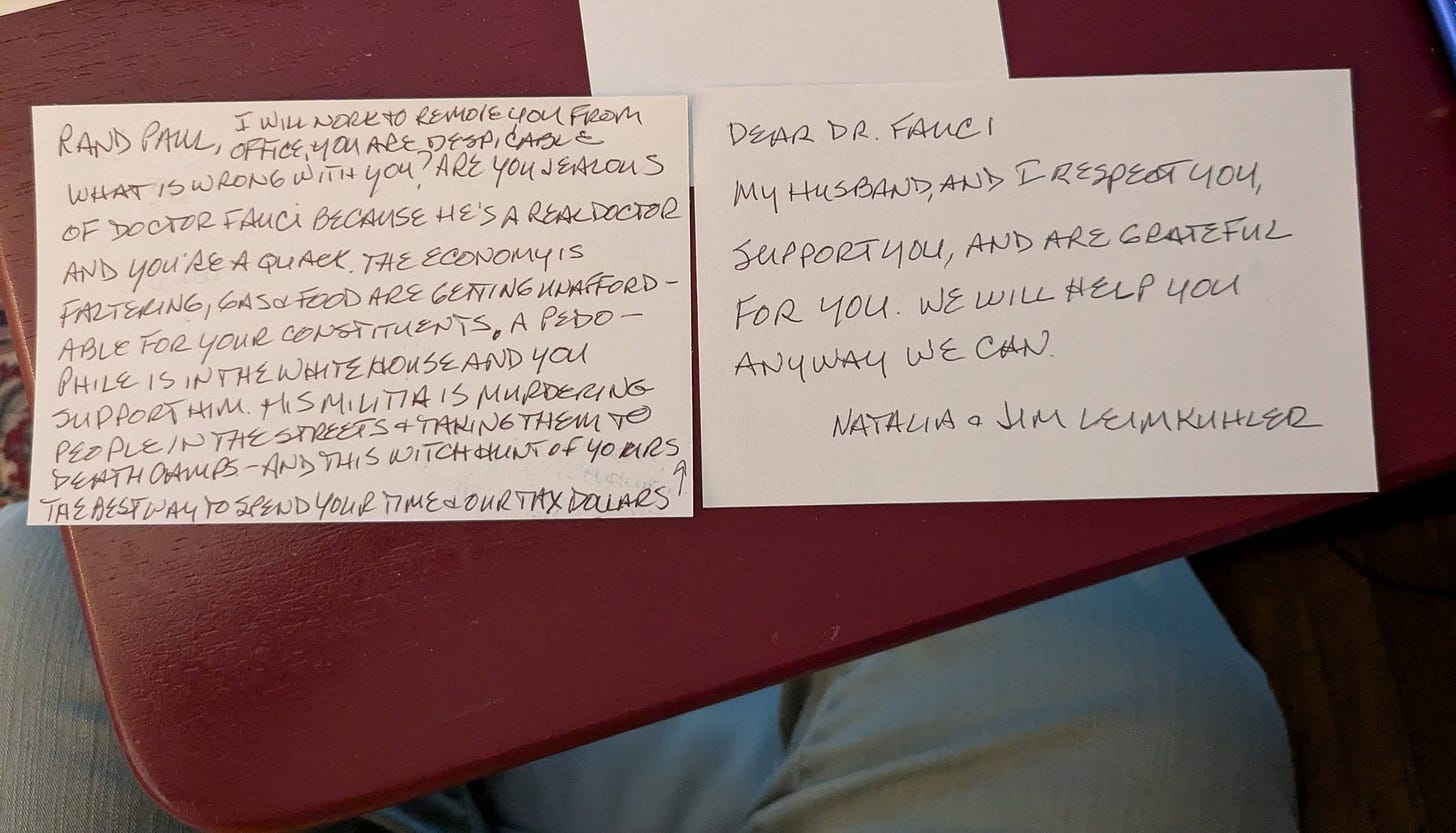 RAND PAUL, I WILL WORK TO REMOVE YOU FROM
OFFICE, YOU ARE DESPICABLE
WHAT IS WRONG WITH YOU? ARE YOU JEALOUS
OF DOCTOR FAUCI BECAUSE HE'S A REAL DOCTOR
AND YOU'RE A QUACK. THE ECONOMY IS
FALTERING, GAS & FOOD ARE GETTING UNAFFORD-
ABLE FOR YOUR CONSTITUENTS. A PEDO-
PHILE IS IN THE WHITE HOUSE AND YOU
SUPPORT HIM. HIS MILITIA IS MURDERING
PEOPLE IN THE STREETS & TAKING THEM TO
DEATH CAMPS - AND THIS WITCH HUNT OF YOURS
THE BEST WAY TO SPEND YOUR TIME & OUR TAX DOLLARS ↑
DEAR DR. FAUCI
MY HUSBAND, AND I RESPECT YOU,
SUPPORT YOU, AND ARE GRATEFUL
FOR YOU. WE WILL HELP YOU
ANYWAY WE CAN.
NATALIA & JIM LEIMKUHLER